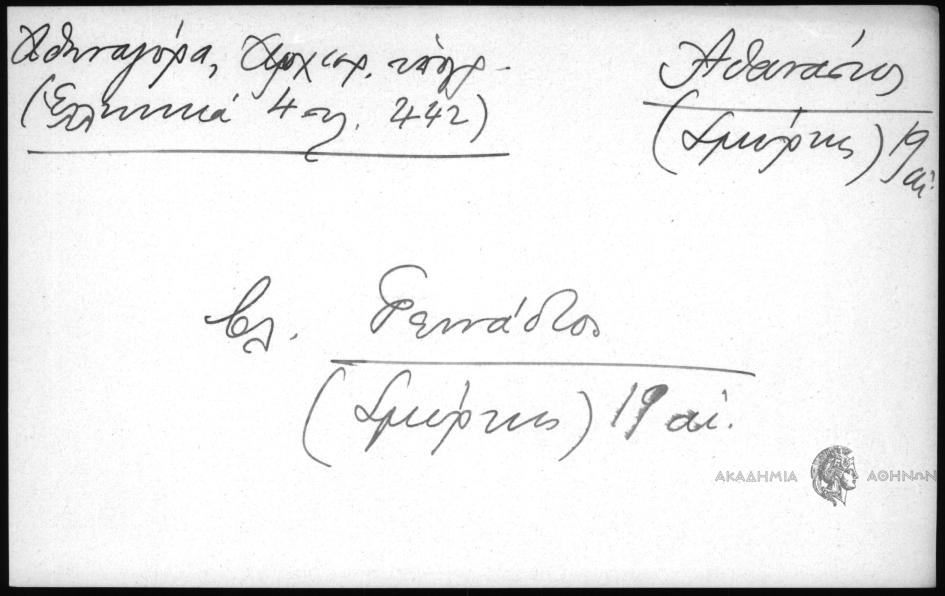 Ἀθηναγόρα, Ἀρχιερ.
(Ἑλληνικά 4 σελ. 442)
Ἀθανάσιος
(Σμύρνης) 19 αἰ.
βλ. Γεννάδιος
(Σμύρνης) 19 αἰ.
ΑΚΑΔΗΜΙΑ ΑΘΗΝΩΝ